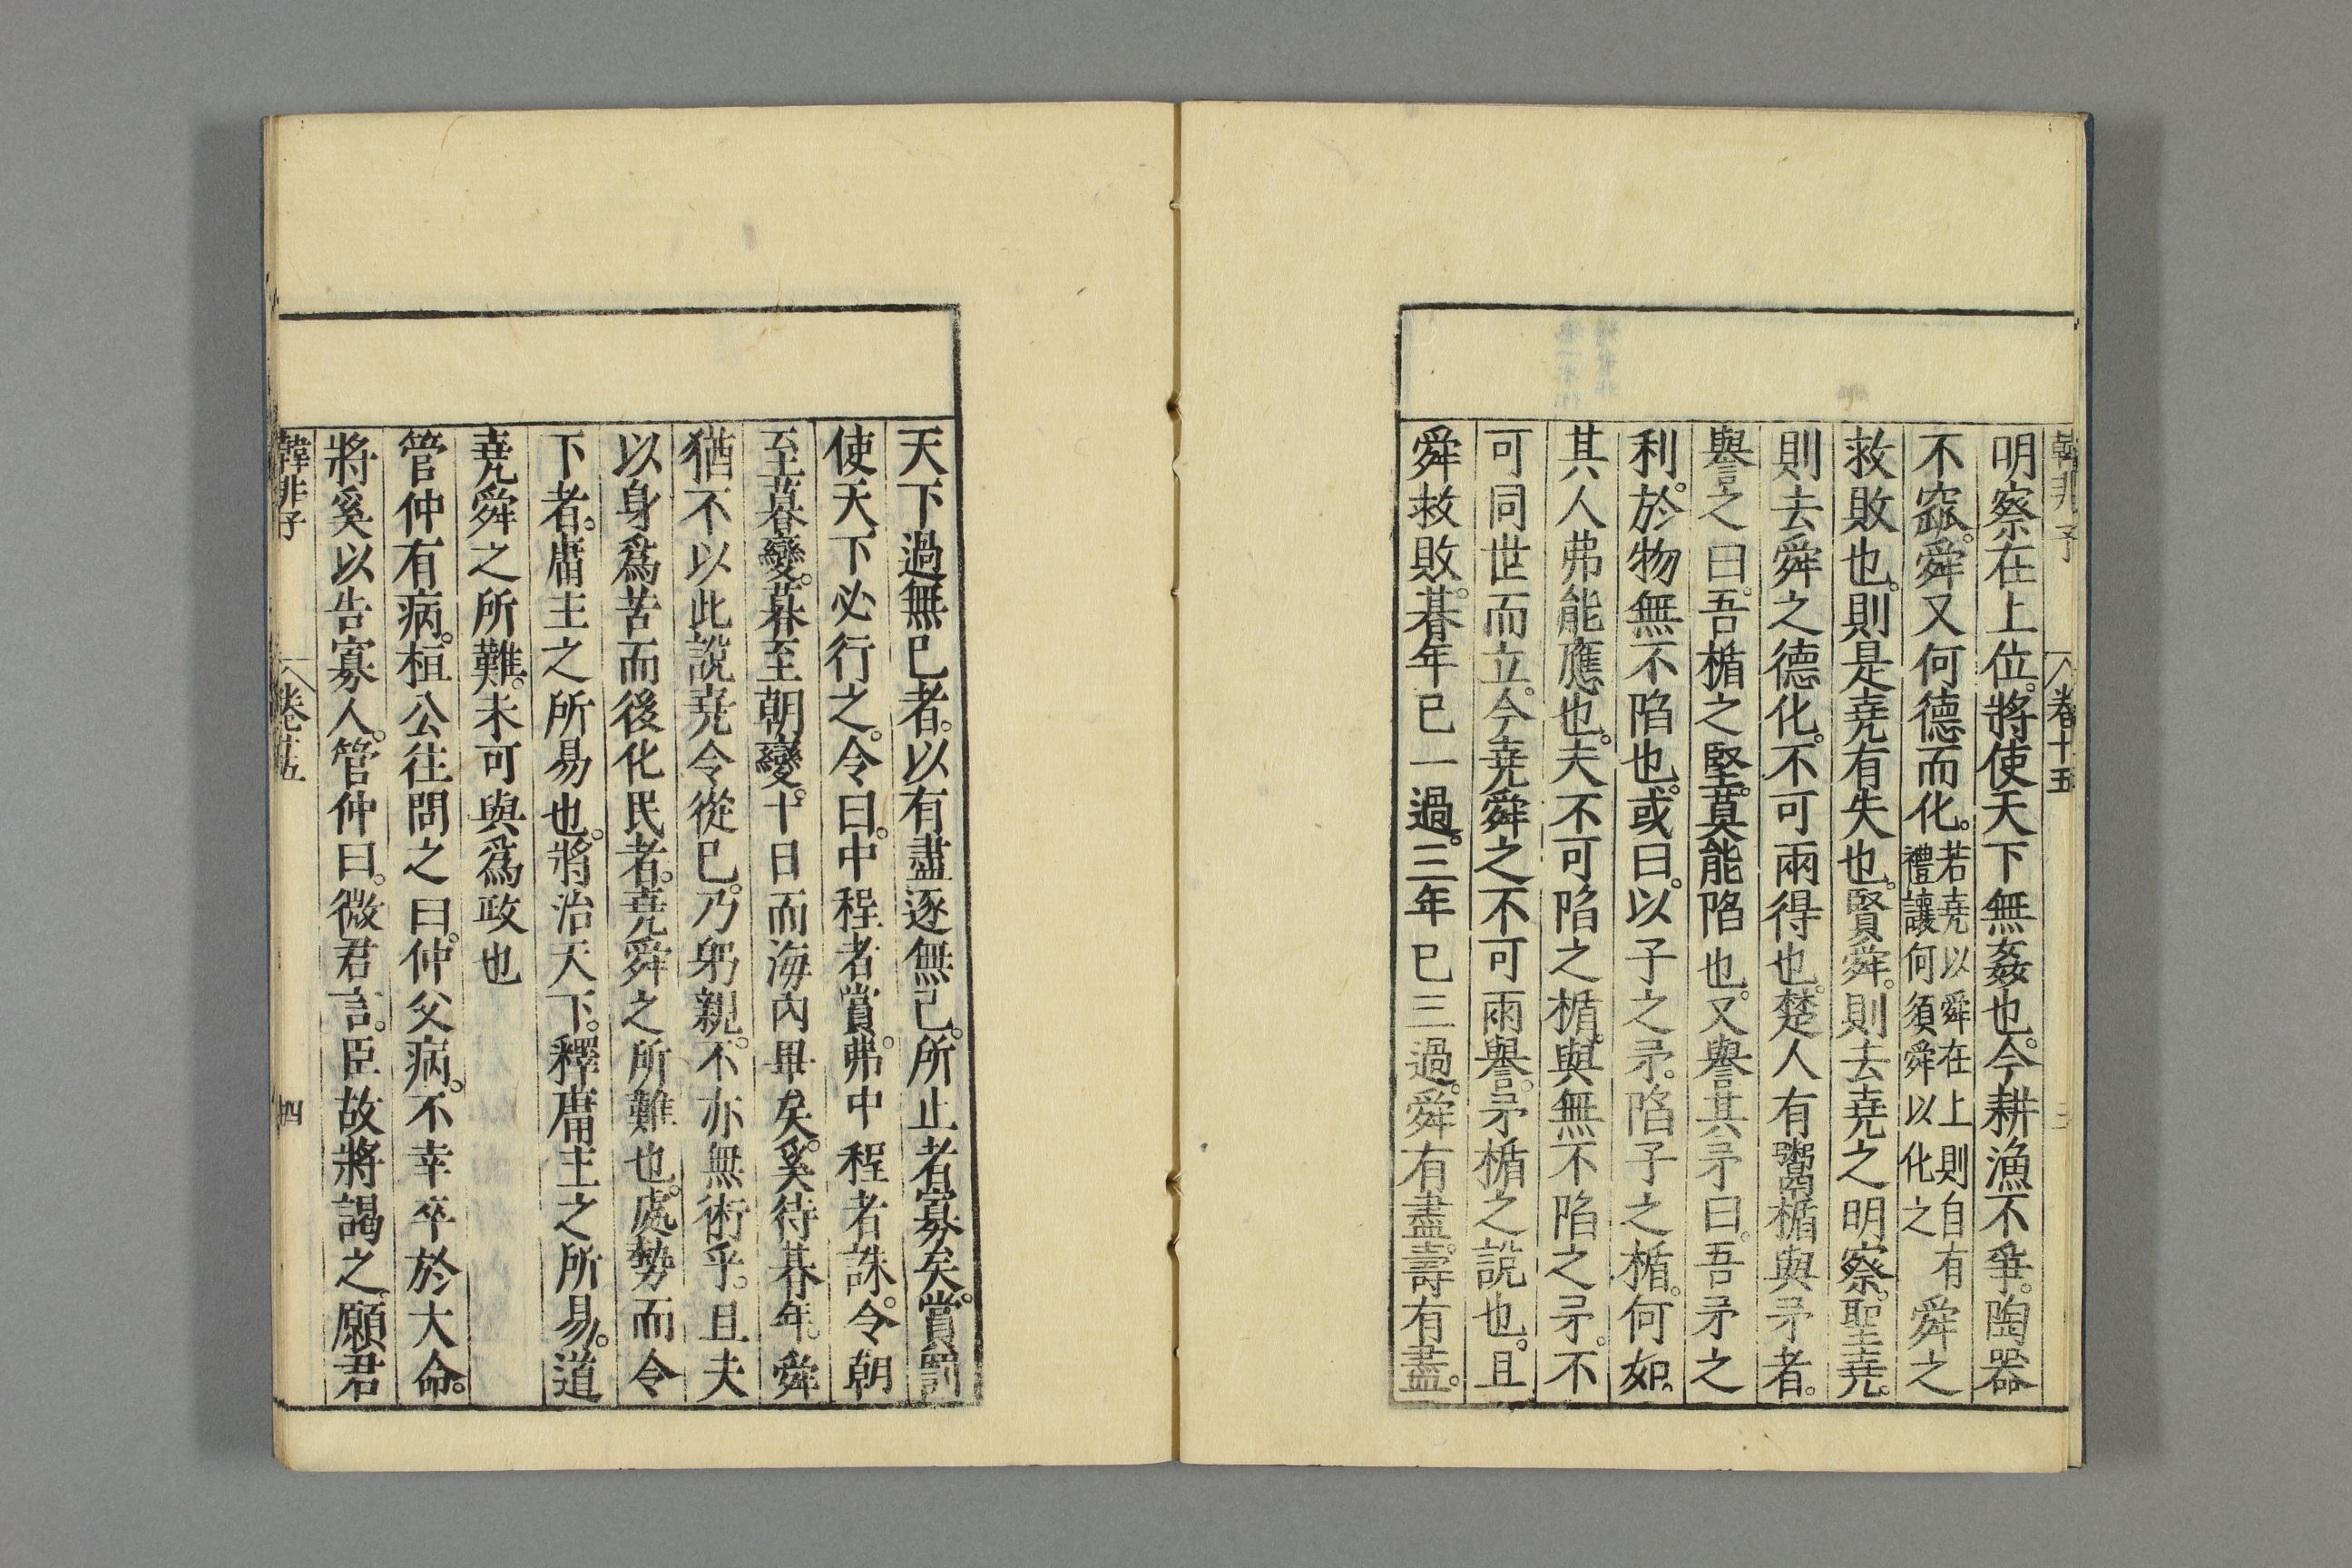 韓非子 卷十五
明察在上位。將使天下無姦也。今耕漁不爭。陶器
不窳。舜又何德而化。若堯以舜在上則自有禮讓何須舜以化之舜之
救敗也。則是堯有失也。賢舜。則去堯之明察。聖堯。
則去舜之德化。不可兩得也。楚人有鬻楯與矛者。
譽之曰。吾楯之堅。莫能陷也。又譽其矛曰。吾矛之
利。於物無不陷也。或曰。以子之矛。陷子之楯。何如。
其人弗能應也。夫不可陷之楯。與無不陷之矛。不
可同世而立。今堯舜之不可兩譽。矛楯之說也。且
舜救敗。朞年已一過。三年已三過。舜有盡。壽有盡。
天下過無已者。以有盡逐無已。所止者寡矣。賞罰
使天下必行之。令曰。中程者賞。弗中程者誅。令朝
至暮變。暮至朝變。十日而海內畢矣。奚待朞年。舜
猶不以此說堯令從已。乃躬親。不亦無術乎。且夫
以身爲苦而後化民者。堯舜之所難也。處勢而令
下者。庸主之所易也。將治天下。釋庸主之所易。道
堯舜之所難。未可與爲政也
管仲有病。桓公往問之曰。仲父病。不幸卒於大命。
將奚以告寡人。管仲曰。微君言。臣故將謁之、願君
韓非子 卷十五 四